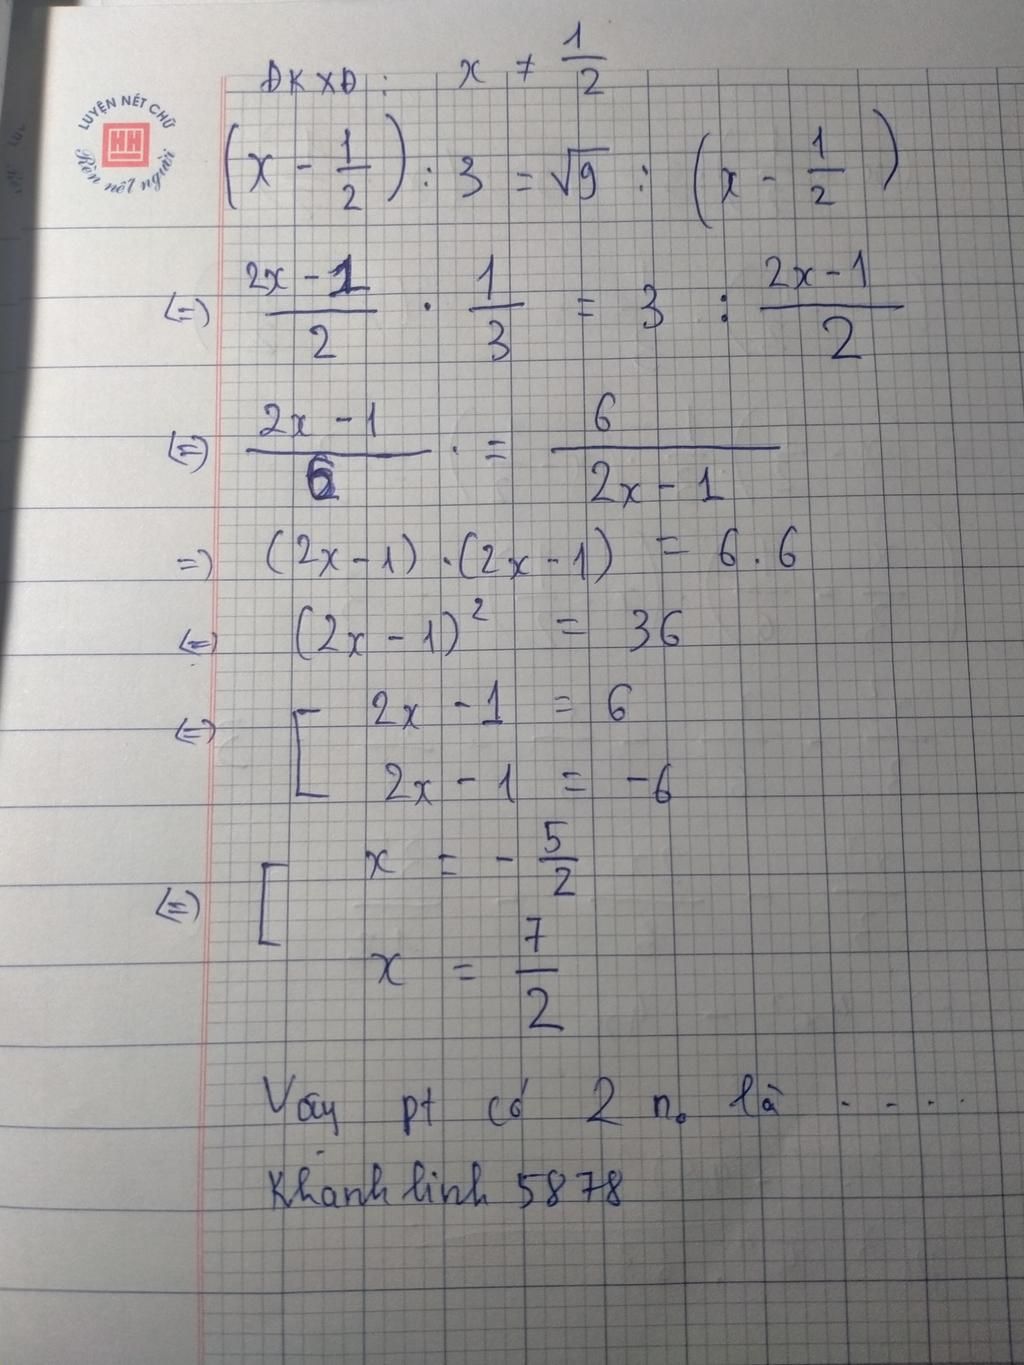 ĐKXĐ: x ≠ 1/2
LUYỆN NÉT CHỮ
HH
Rèn nết người
(x - 1/2) : 3 = √9 : (x - 1/2)
(=) (2x - 1)/2 . 1/3 = 3 : (2x - 1)/2
(=) (2x - 1)/6 . = 6/(2x - 1)
=) (2x - 1) . (2x - 1) = 6 . 6
(=) (2x - 1)² = 36
(=) [ 2x - 1 = 6
2x - 1 = -6
(=) [ x = - 5/2
x = 7/2
Vậy pt có 2 n₀ là ....
Khánh linh 5878